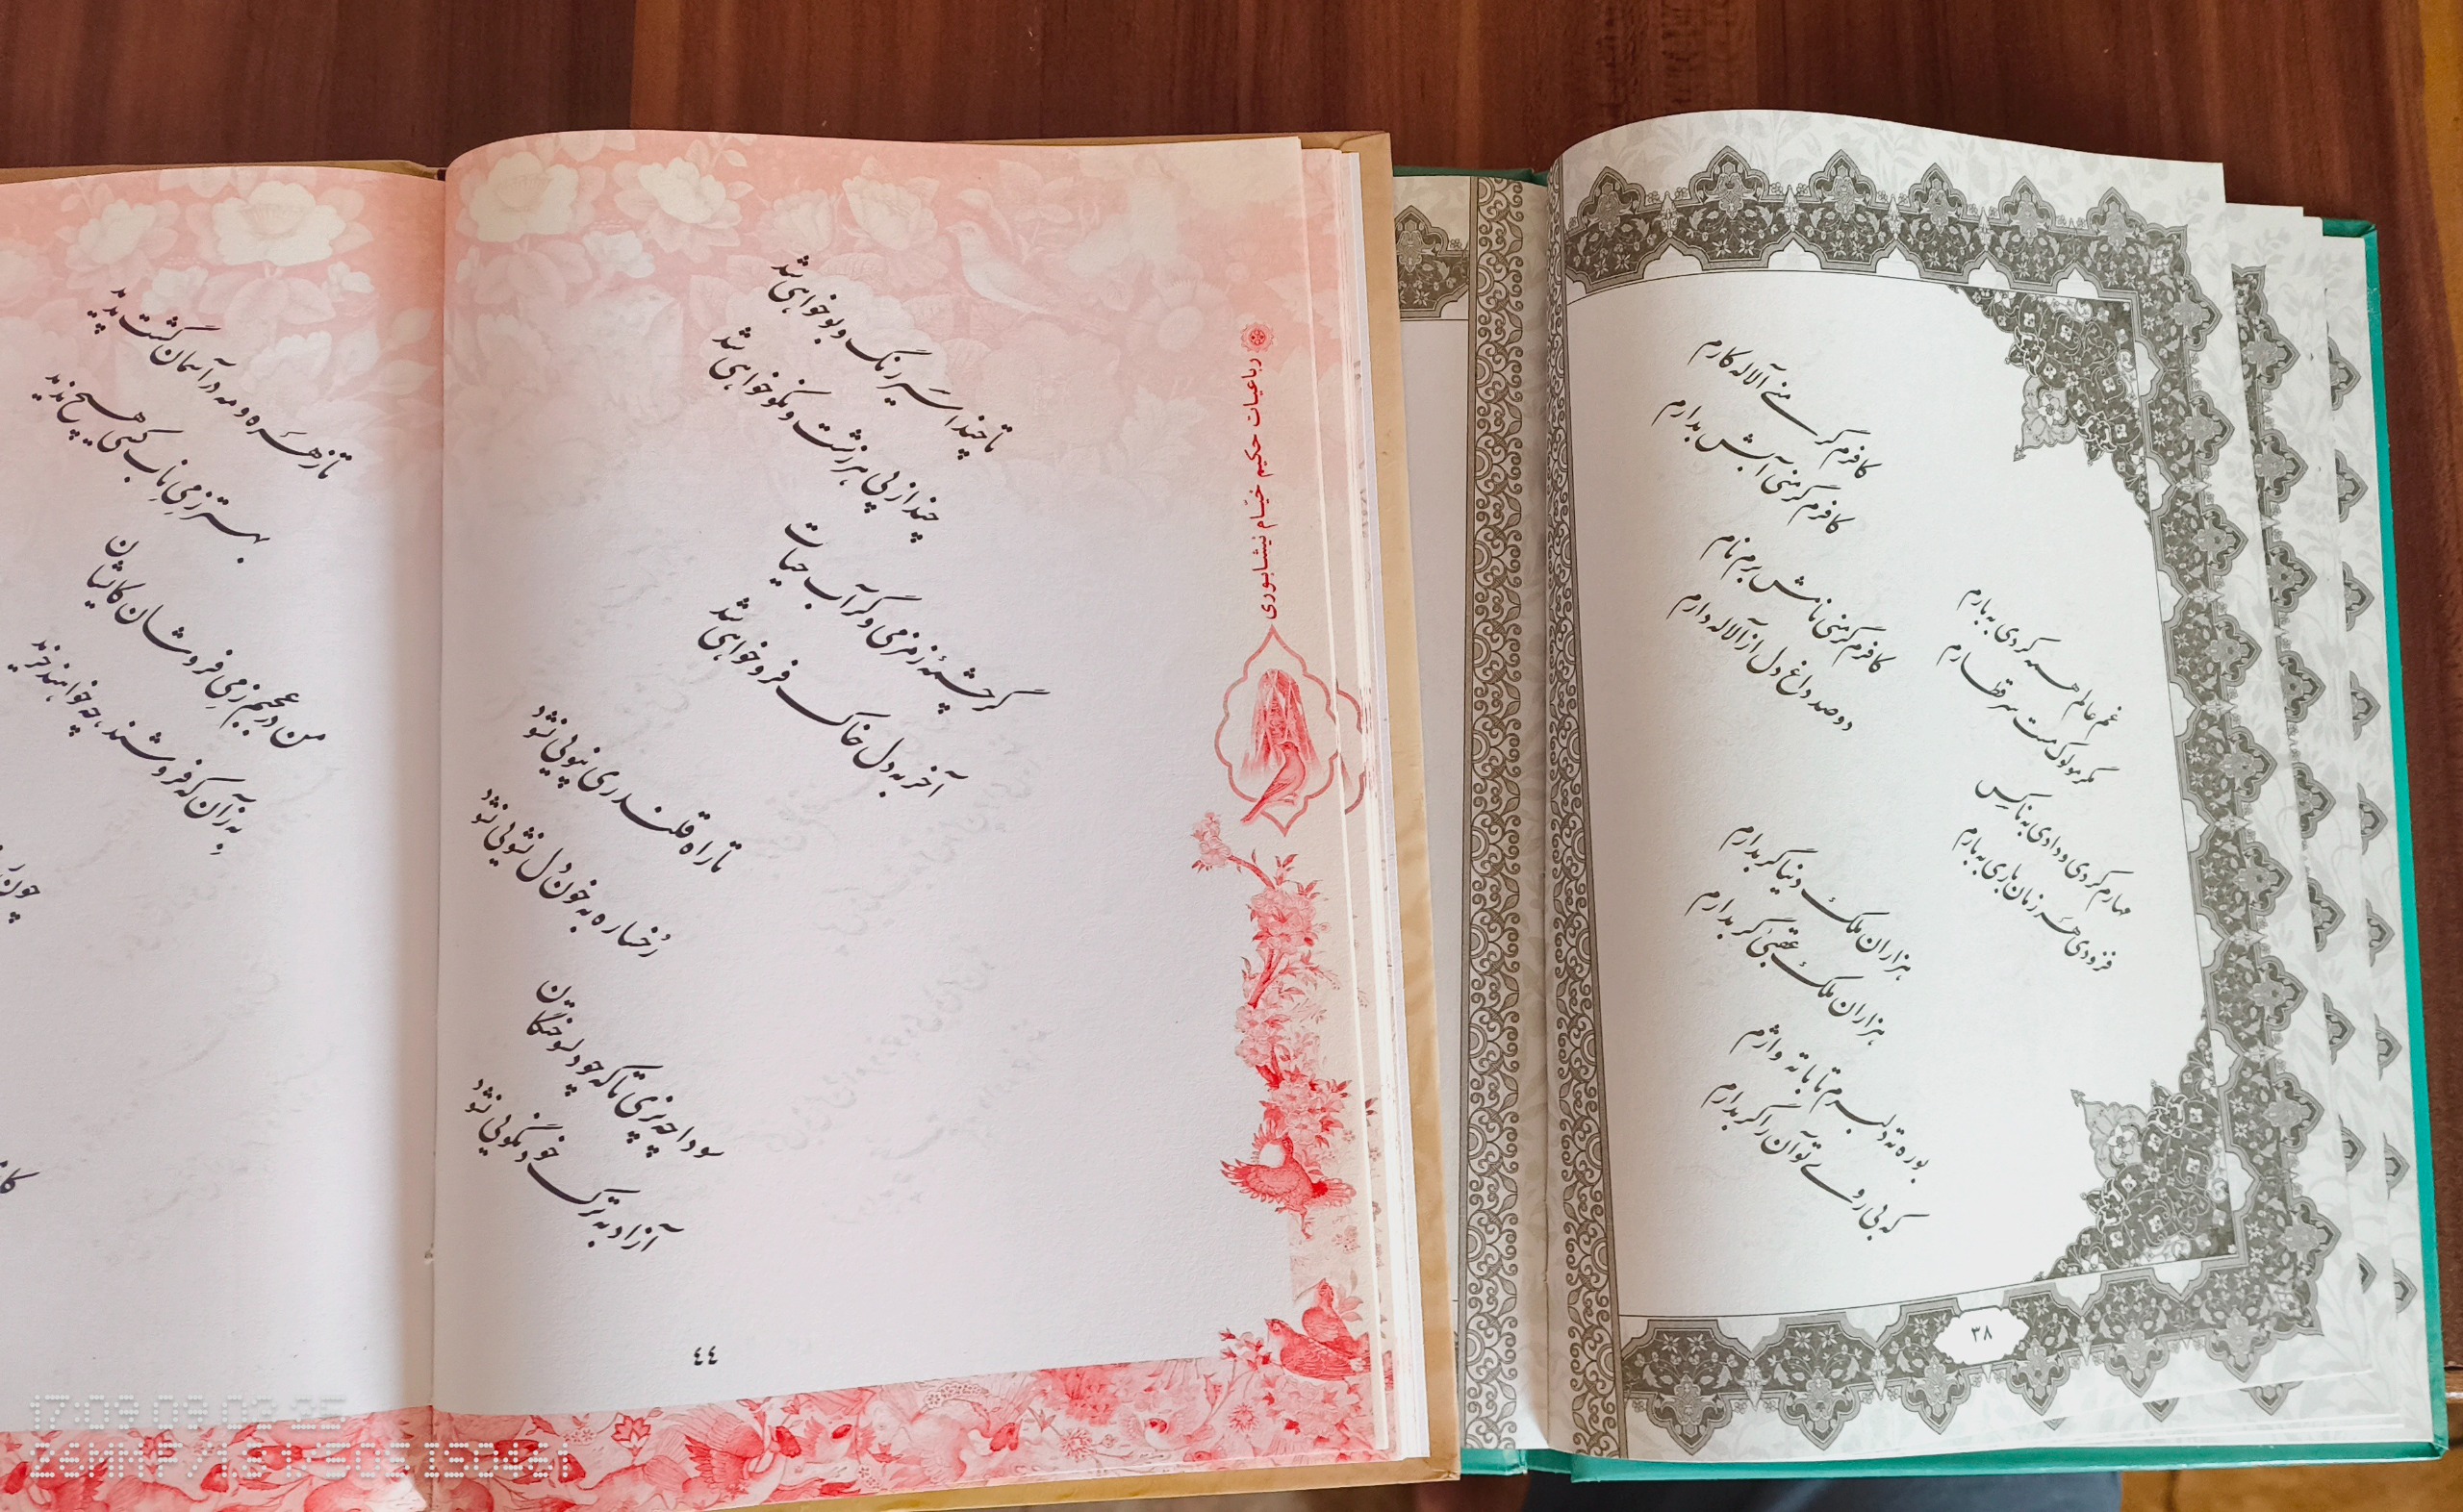 تا زهره و مه در آسمان گشت پدید
بهتر ز می ناب کسی هیچ ندید
من در عجبم ز می فروشان کایشان
به زآن که فروشند، چه خواهند خرید
چون
رباعیات حکیم خیّام نیشابوری
تا چند اسیر رنگ و بو خواهی شد
چند از پی هر زشت و نکو خواهی شد
گر چشمهٔ زمزمی و گر آب حیات
آخر به دل خاک فرو خواهی شد
تا راه قلندری نپویی نشود
رُخساره به خون دل نشویی نشود
سودا چه پزی تا که چو دلسوختگان
آزاد به ترک خود نگویی نشود
٤٤
غم عالم همه کردی به بارم
مگر مو لوک مست سر قطارم
مهارم کردی و دادی به ناکس
فزودی هر زمان باری به بارم
کافرم گر منی آلاله کارم
کافرم گر منی آبش بدارم
کافرم گر منی نامش برم نام
دو صد داغ دل از آلاله دارم
هزاران ملک دنیا گر بدارم
هزاران ملک عقبی گر بدارم
بوره ته دلبرم تا با ته واژم
که بی روی تو آن را گر بدارم
۳۸
17:09 09.02.25